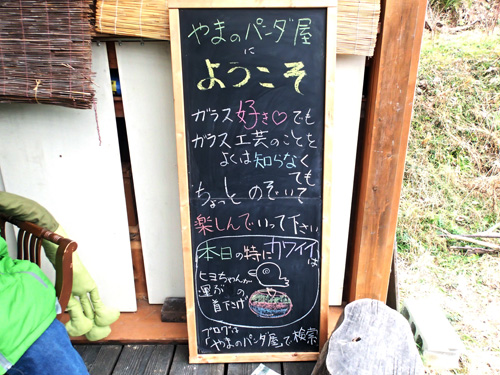 やまのパンダ屋
に
ようこそ
ガラス好き♡でも
ガラス工芸のことを
よくは知らなく
ても
ちょっとのぞいて
楽しんでいって下さい
本日の特にカワイイは
ヒヨちゃんが
運ぶの
首下げ
ブログは
「やまのパンダ屋」で検索